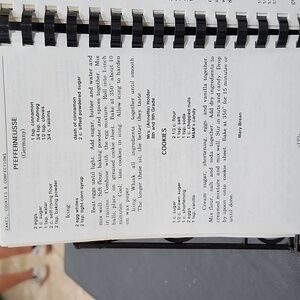 CAKES, COOKIES & CONFECTIONS
PFEFFERNEUSSE
(Germany)
2 eggs
c. sugar
tsp. water
2 c. self-rising flour
tsp. baking powder
1/2 tsp. cinnamon
3/4 tsp. nutmeg
1/2 tsp. cloves
3/4 c. raisins
Icing
2 egg whites
2 tsp. light corn syrup
dash of cinnamon
2 c. sifted powdered sugar
Beat eggs until light. Add sugar, butter and water and
mix well. Sift flour, baking powder, and spices together. Mix
in raisins. Combine with the egg mixture. Roll into 1-inch
balls; place on greased cookie sheet. Bake at 350° about 10
minutes. Cool, then cookies in icing. Allow icing to harden
on wax paper.
Icing: Whisk all ingredients together until smooth.
The longer these sit, the better they taste!
Mrs. (Annette) Holder
8th & 9th Grade
COOKIES
1 c. sugar
1/2 c. brown sugar
c. shortening
2 eggs
tsp. vanilla
c. flour
1 tsp. salt
1 tsp. soda
1 c. nuts
M&M's candy
Cream sugar, shortening, eggs and vanilla together.
Mix flour, salt and soda together. Add dry ingredients to
creamed mixture and mix well. Stir in nuts and candy. Drop
by spoon onto cookie sheet. Bake at 350° for 15 minutes or
until done.
Mary Brean